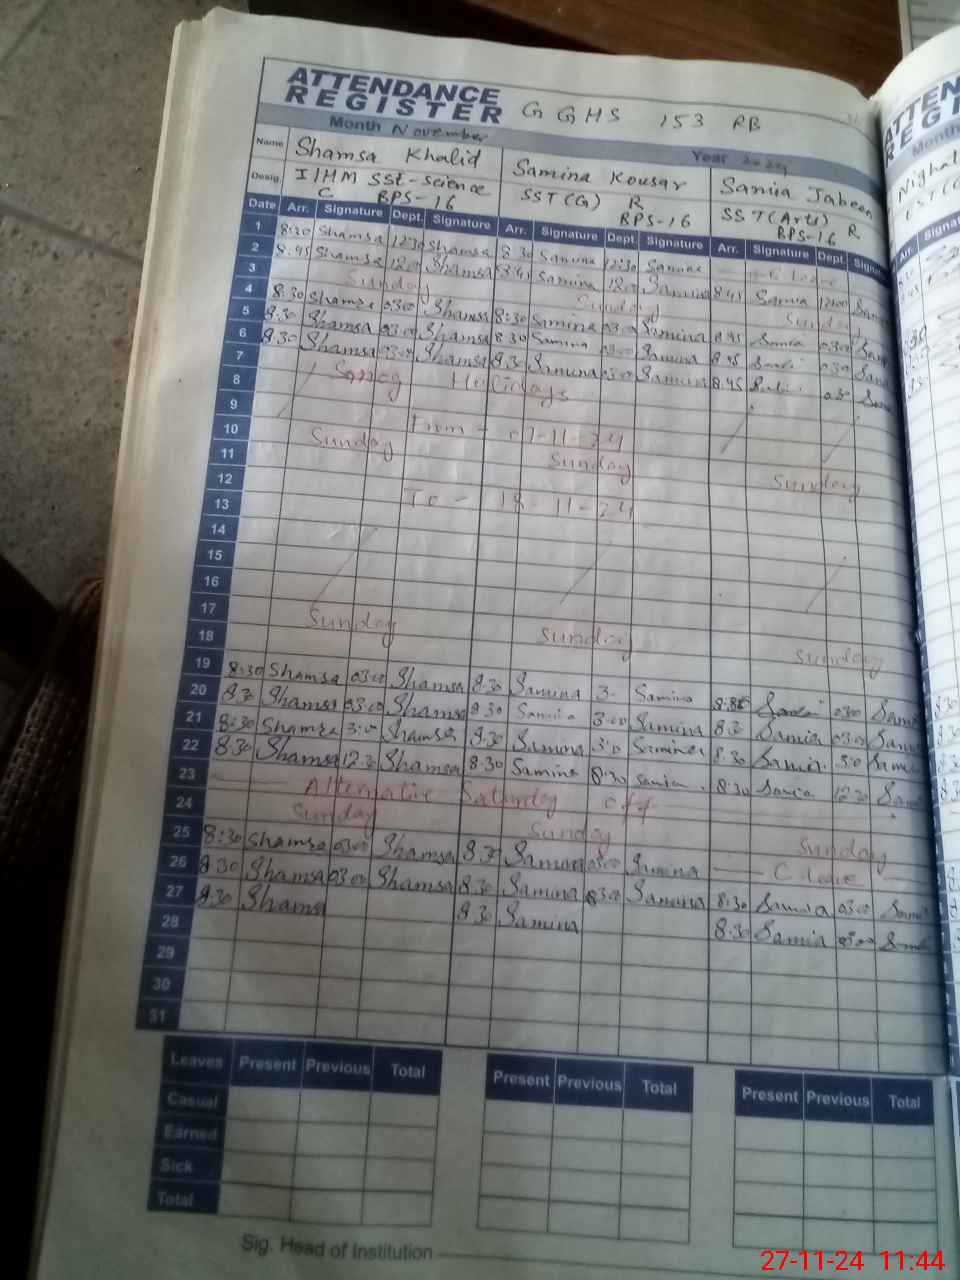 ATTENDANCE REGISTER GGHS 153 RB
Month November Year 2024
Name Shamsa Khalid Samina Kousar Samia Jabeen
Desig. I/HM SSE-Science C BPS-16 SST(G) R BPS-16 SST(Arts) R BPS-16
Date Arr. Signature Dept. Signature Arr. Signature Dept. Signature Arr. Signature Dept.
1 8:30 Shamsa 12:30 Shamsa 8:30 Samina 12:30 Samina C leave
2 8:45 Shamsa 1200 Shamsa 8:45 Samina 1200 Samina 8:45 Samia 12:00
3 Sunday Sunday Sunday
4 8:30 Shamsa 03:00 Shamsa 8:30 Samina 03:00 Samina 8:45 Samia 03:00
5 8:30 Shamsa 03:00 Shamsa 8:30 Samina 03:00 Samina 8:45 03:00
6 8:30 Shamsa 03:00 Shamsa 8:30 Samina 03:00 Samina 8:45
7 Smog Holidays
8
9 From - 07-11-24
10 Sunday Sunday Sunday
11
12 To - 18-11-24
13
14
15
16
17 Sunday Sunday Sunday
18
19 8:30 Shamsa 03:00 Shamsa 8:30 Samina 3- Samina 03:00
20 8:30 Shamsa 03:00 Shamsa 8:30 Samina 3:00 Samina 8:30 Samia 03:00
21 8:30 Shamsa 3:00 Shamsa 8:30 Samina 3:0 Samina 8:30 Samia 3:0
22 8:30 Shamsa 12:30 Shamsa 8:30 Samina 8:30 Samia 12:30
23 Alternative Saturday off
24 Sunday Sunday Sunday
25 8:30 Shamsa 03:00 Shamsa 8:30 Samina 03:00 Samina C leave
26 8:30 Shamsa 03:00 Shamsa 8:30 Samina 03:00 Samina 8:30 Samia 03:00
27 8:30 Shamsa 8:30 Samina 8:30 Samia
28
29
30
31
Leaves Present Previous Total Present Previous Total Present Previous Total
Casual
Earned
Sick
Total
Sig. Head of Institution
27-11-24 11:44